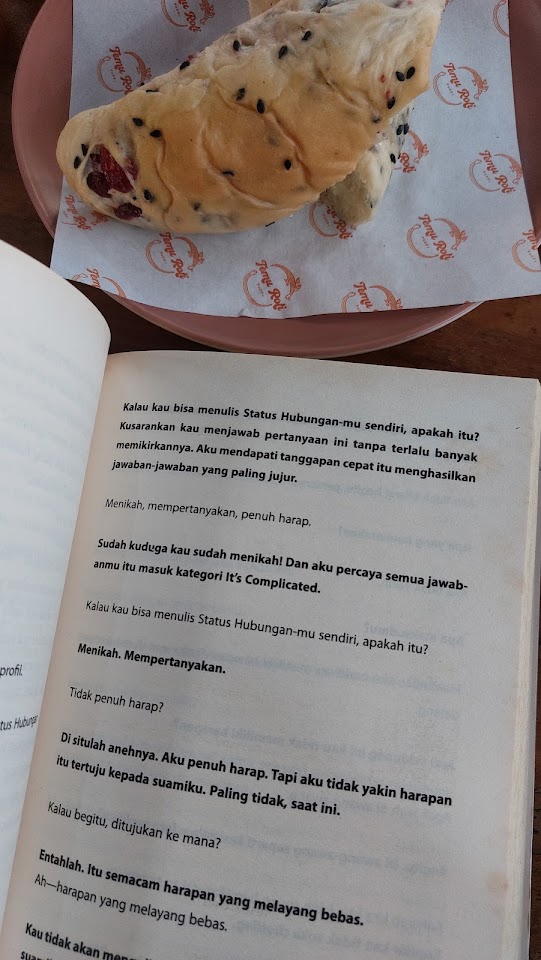 Temu Roti
Temu Roti
Temu Roti
Temu Roti
Temu Roti
Temu Roti
Temu Roti
profil.
tus Hubungan
Kalau kau bisa menulis Status Hubungan-mu sendiri, apakah itu?
Kusarankan kau menjawab pertanyaan ini tanpa terlalu banyak
memikirkannya. Aku mendapati tanggapan cepat itu menghasilkan
jawaban-jawaban yang paling jujur.
Menikah, mempertanyakan, penuh harap.
Sudah kuduga kau sudah menikah! Dan aku percaya semua jawab-
anmu itu masuk kategori It's Complicated.
Kalau kau bisa menulis Status Hubungan-mu sendiri, apakah itu?
Menikah. Mempertanyakan.
Tidak penuh harap?
Di situlah anehnya. Aku penuh harap. Tapi aku tidak yakin harapan
itu tertuju kepada suamiku. Paling tidak, saat ini.
Kalau begitu, ditujukan ke mana?
Entahlah. Itu semacam harapan yang melayang bebas.
Ah—harapan yang melayang bebas.
Kau tidak akan